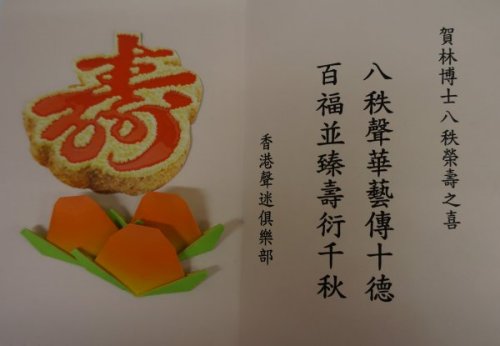 賀林博士八秩榮壽之喜
八秩聲華藝傳十德
百福並臻壽衍千秋
香港聲迷俱樂部
壽